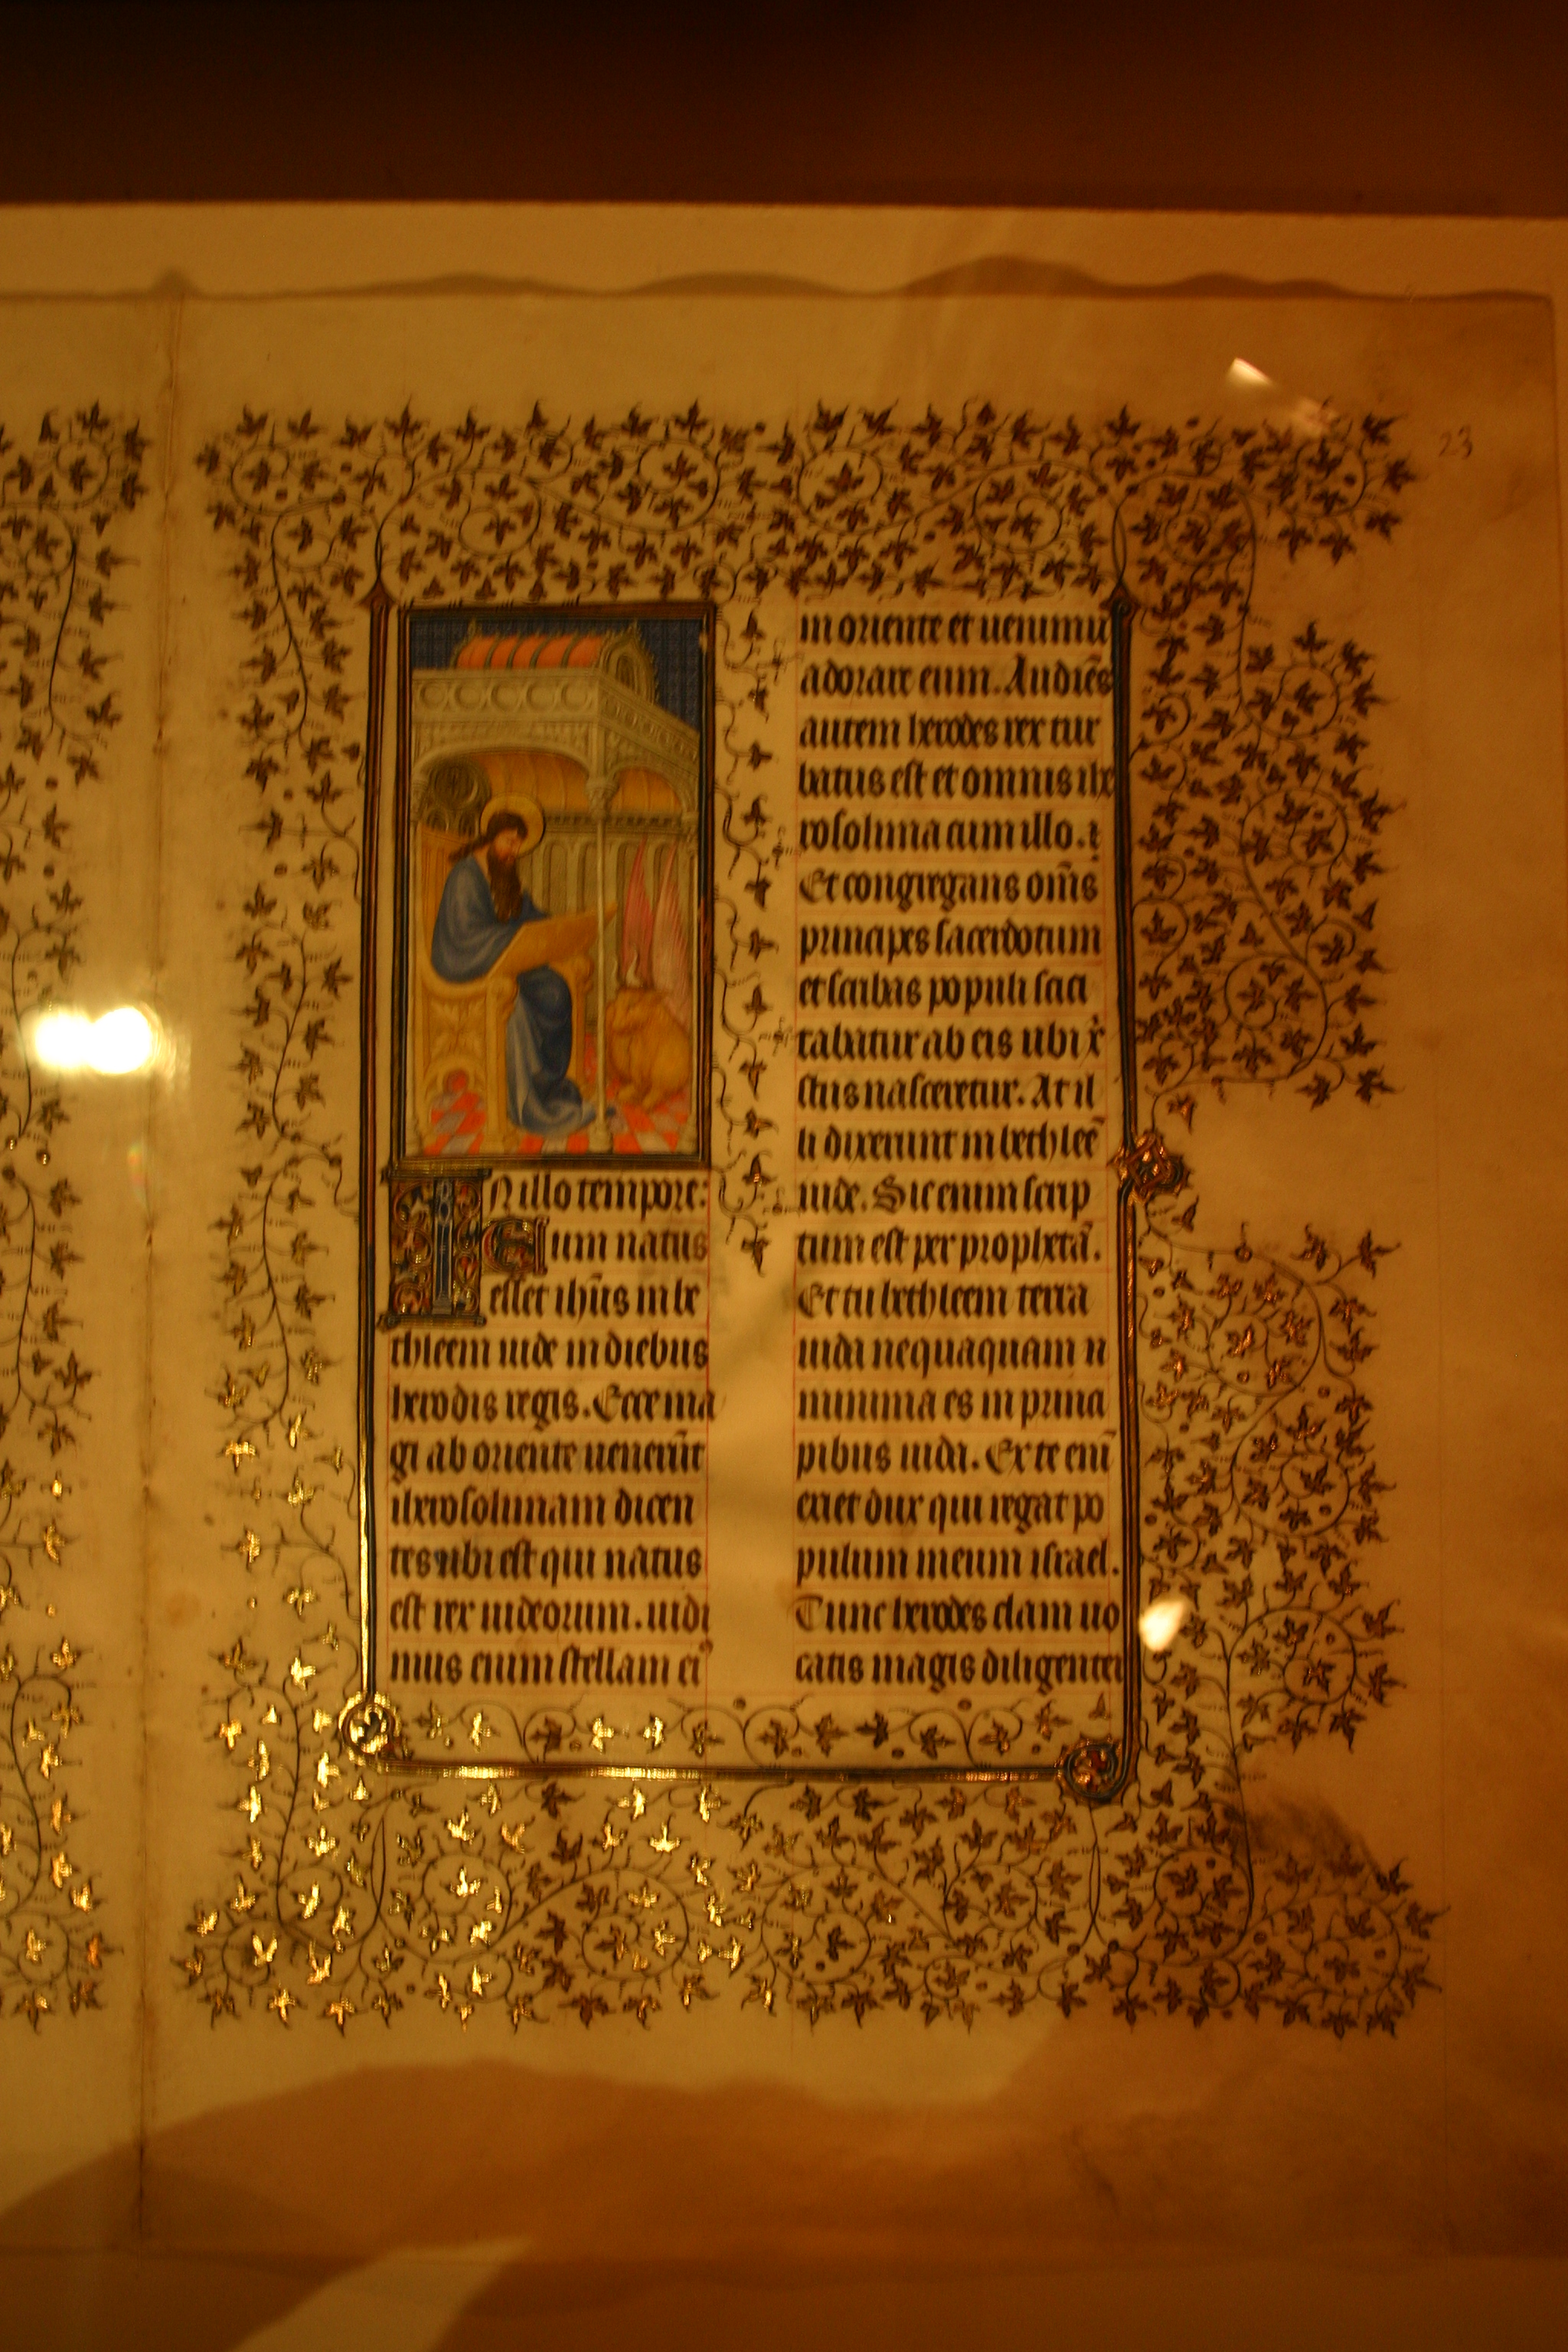 23
In illo tempore:
Cum natus
esset ih̄us in be
thleem iude in diebus
herodis regis. Ecce ma
gi ab oriente uenerūt
iherosolimam dicen
tes ubi est qui natus
est rex iudeorum. uidi
mus enim stellam eiꝰ
in oriente et uenimu
adorare eum. Audiēs
autem herodes rex tur
batus est et omnis ihe
rosolima cum illo.
Et congregans om̄s
principes sacerdotum
et scribas populi scici
tabatur ab eis ubi x̄
stus nasceretur. At il
li dixerunt in bethleē
iude. Sic enim scrip
tum est per prophetā.
Et tu bethleem terra
iuda nequaquam
minima es in princi
pibus iuda. Ex te enī
exiet dux qui regat po
pulum meum israel.
Tunc herodes clam uo
catis magis diligenter